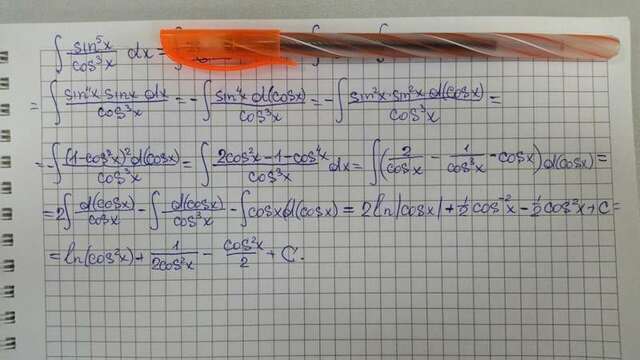 ∫ sin⁵x/cos³x dx =
= ∫ sin⁴x·sinx dx/cos³x = -∫ sin⁴x d(cosx)/cos³x = -∫ sin²x·sin²x d(cosx)/cos³x =
= -∫ (1-cos²x)² d(cosx)/cos³x = ∫ 2cos²x-1-cos⁴x/cos³x dx = ∫(2/cosx - 1/cos³x - cosx) d(cosx) =
= 2∫ d(cosx)/cosx - ∫ d(cosx)/cos³x - ∫cosx d(cosx) = 2ln|cosx| + ½cos⁻²x - ½cos²x + C =
= ln(cos²x) + 1/2cos²x - cos²x/2 + C.